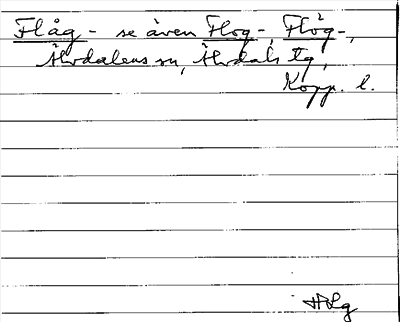 Flåg - se även Flog-, Flög-,
Älvdalens sn, Älvdals tg,
Kopp. l.